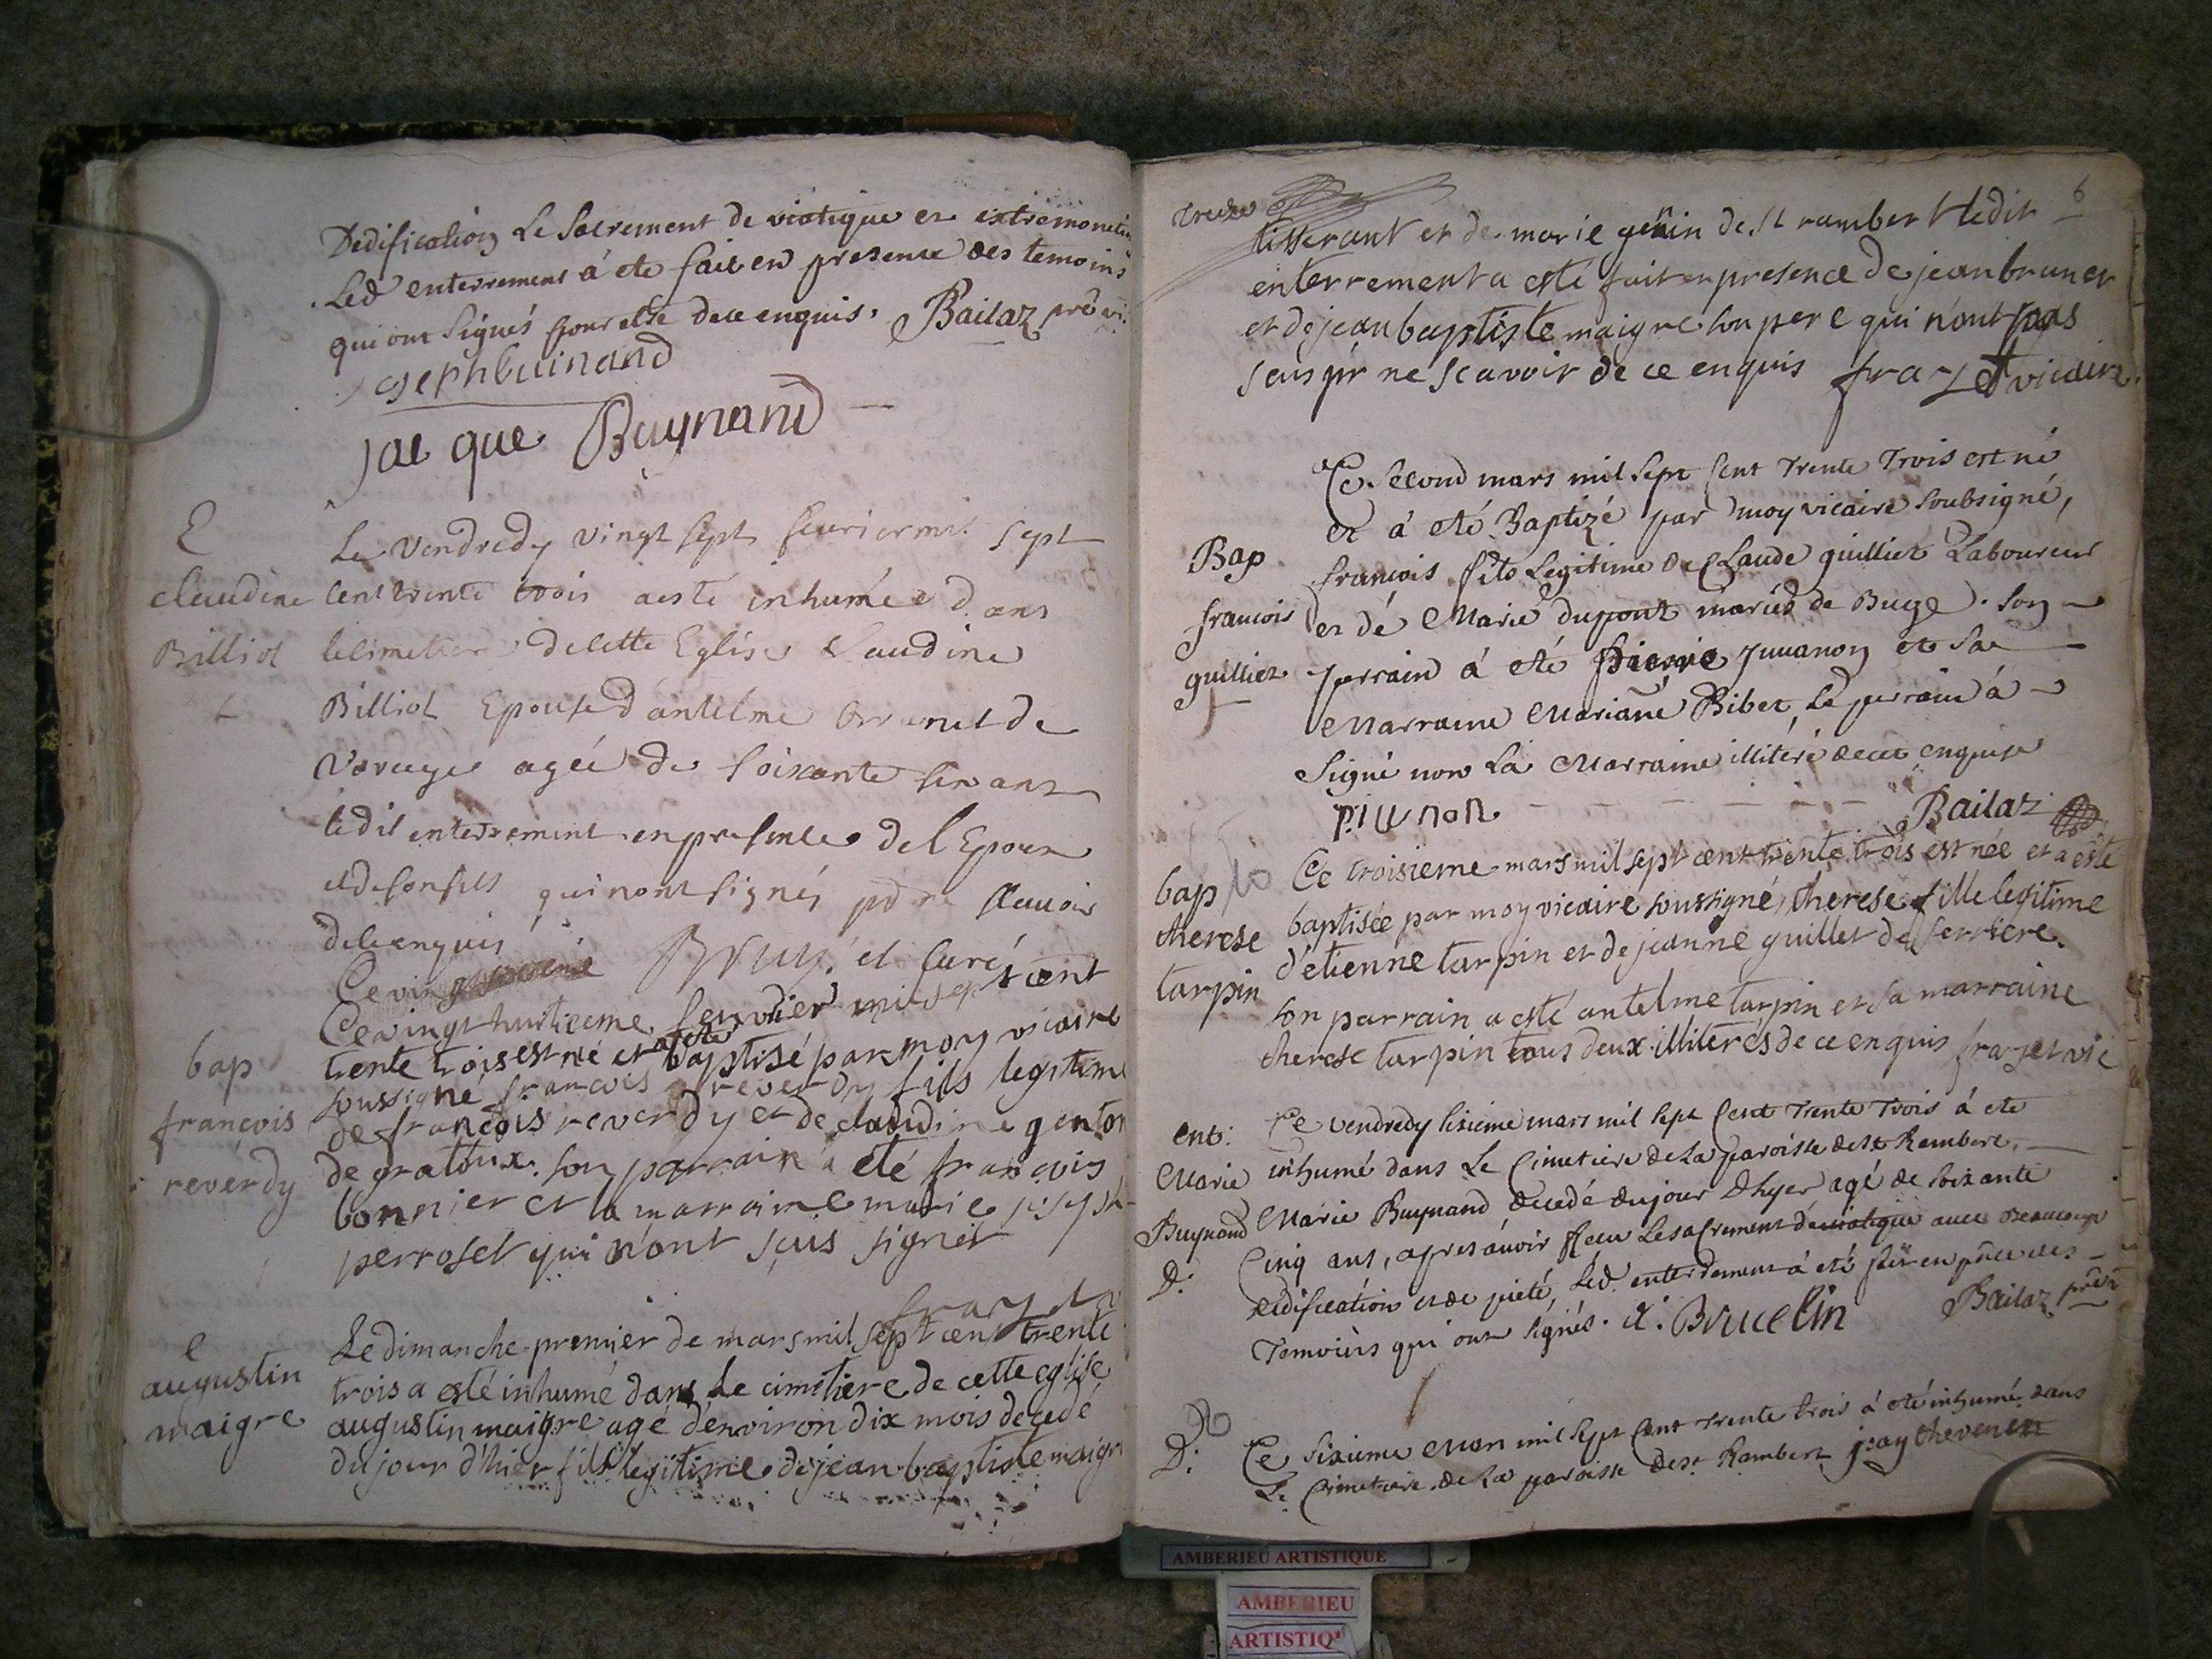 Dedification Le Sacrement de viatique et extremonction
Led enterrement á ete fait en presence des temoins
qui ont Signés pour estre de ce enquis. Bailaz prê vi.
joseph buinand
jac que Buynand
E
Le Vendredy vingt sept feurier mil sept
claudine
Cent trente trois a esté inhumée dans
Billiot
le cimetiere de cette Eglise Claudine
Billiot Epouse d'antelme de
agée de soixante ans
ledit enterrement en presence de l'Epoux
et de son fils qui n'ont signés pr ne scauoir
de ce enquis
et Curé
Ce vingt
Ce vingt huitieme feuvrier mil sept cent
bap
trente trois est né et a esté baptisé par moy vicaire
soussigné francois reverdy fils legitime
françois
de françois reverdy et de claudine genton
reverdy
de gratoux. son parrain a été francois
bonnier et la marraine marie josephe
perroset qui n'ont sçus signer
frarjet v
e
Le dimanche premier de mars mil sept cent trente
augustin
trois a esté inhumé dans le cimetiere de cette eglise
maigre
augustin maigre agé d'environ dix mois decedé
du jour d'hier fils legitime de jean baptiste maigre
6
tisserant et de marie genin de St rambert ledit
enterrement a esté fait en presence de jean brunet
et de jean baptiste maigre son pere qui n'ont pas
sous pr ne scavoir de ce enquis frarjet vicaire
Ce. second mars mil sept Cent Trente Trois est né
et á eté Baptizé par moy vicaire soubsigné,
Bap
françois fils Legitime de Claude guilliet Laboureur
francois
et dé Marie dupont mariés de Buge. son
guilliet
perrain á eté Pierre juuanon et sa
Marraine Mariane Bibet, Le perrain á
Signé non La Marraine illitéré de ce enquise
p. iuunon
Bailaz
bap
Ce troisieme mars mil sept cent trente trois est née et a esté
therese
baptisée par moy vicaire soussigné, therese fille legitime
tarpin
d'etienne tarpin et de jeanne guillet de serriere.
son parrain a esté antelme tarpin et sa marraine
therese tarpin tous deux illiterés de ce enquis frarjet vic
ent:
Ce vendredy sixieme mars mil sept Cent Trente Trois á ete
Marie
inhumé dans Le Cimetiere de La paroisse de St Rambert,
Buynand
Marie Buynand decedé du jour Dhyer agé de soixante
D:
Cinq ans, apres avoir Receu Le sacrement de viatique avec Beaucoup
edification et de pieté, Led. enterrement á eté fait en pnce des
Temoins qui ont signés. A. Brucelin Bailaz prêt
D:
Ce Sixieme Mars mil Sept Cent Trente trois á eté inhumé dans
Le Cimetiere de La paroisse de St Rambert thevenin
AMBERIEU ARTISTIQUE
AMBERIEU
ARTISTIQ